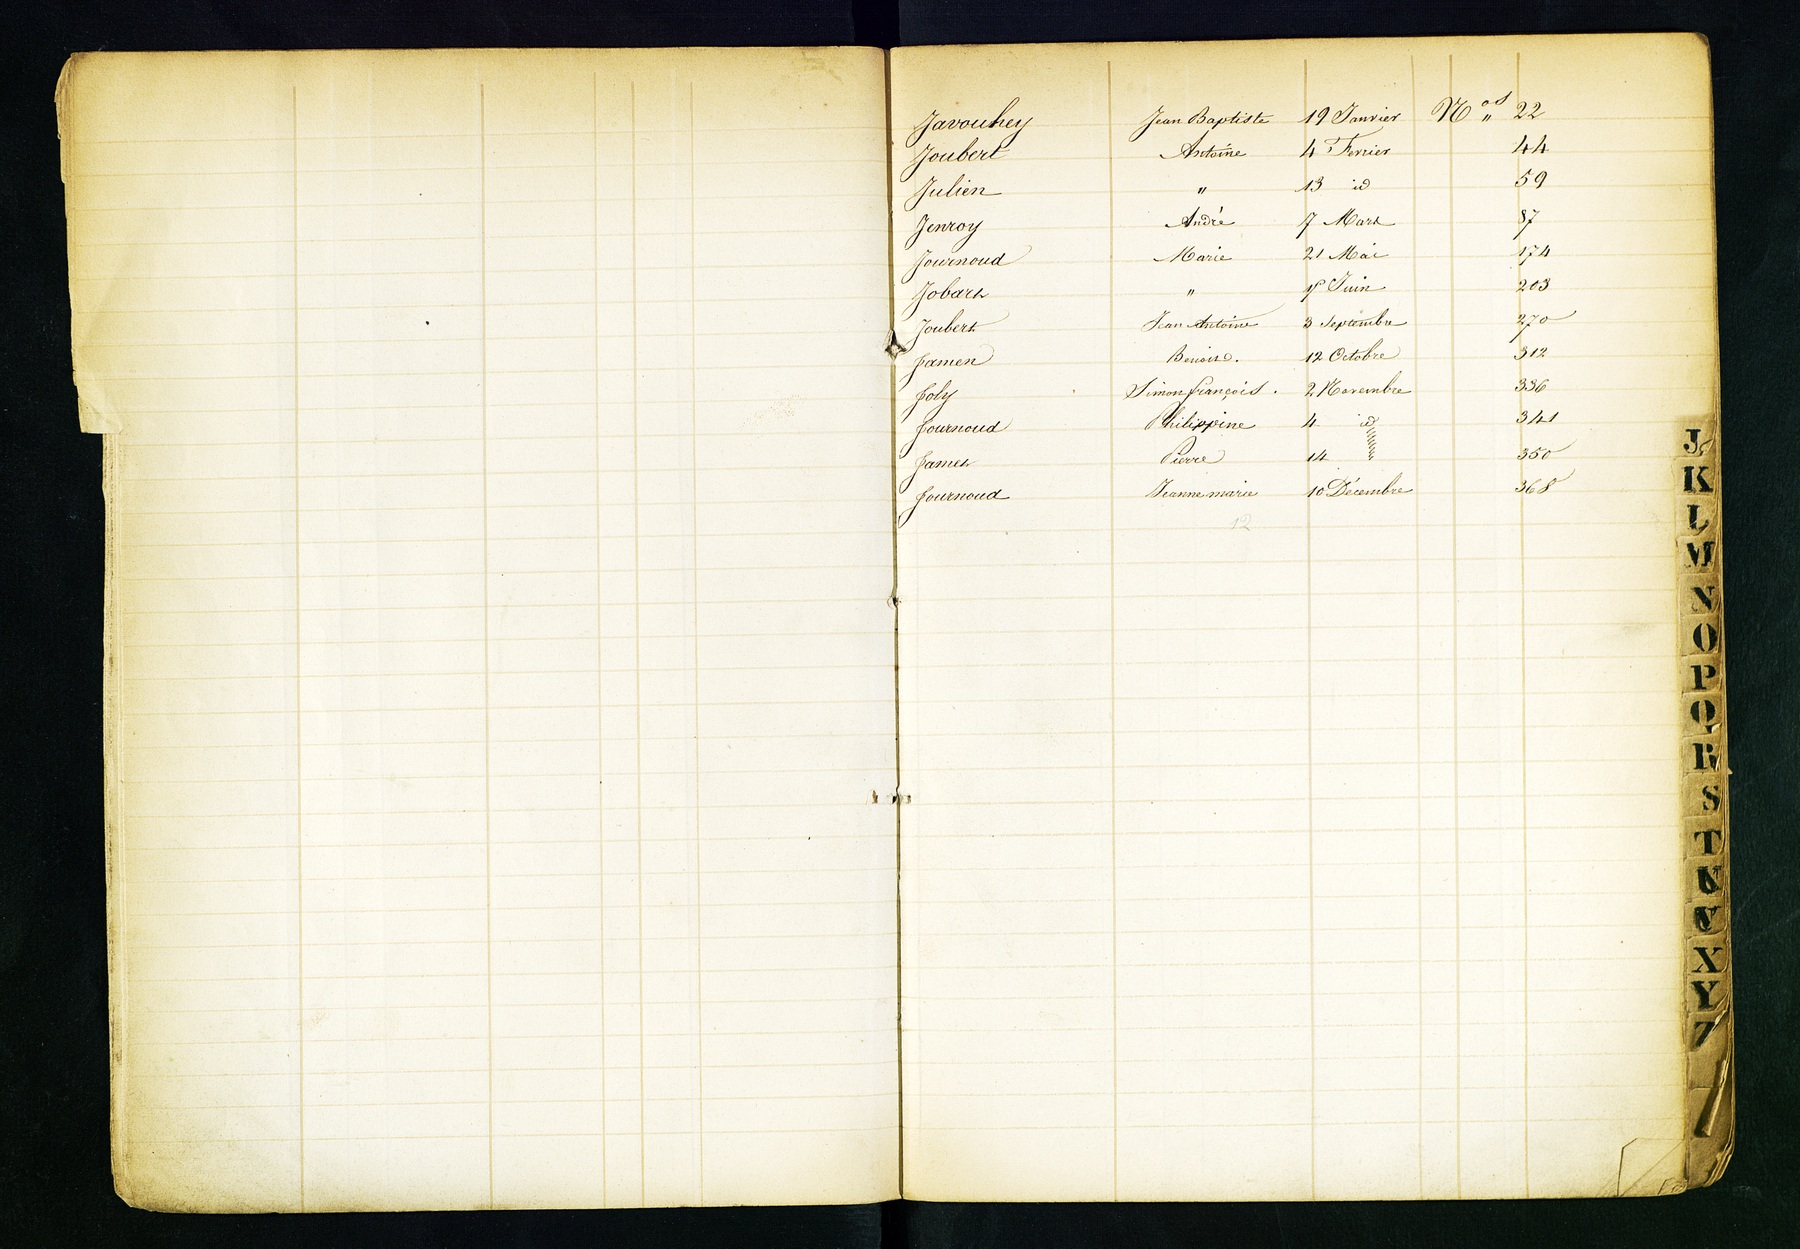 Javouhey Jean Baptiste 19 Janvier Nos " 22
Joubert Antoine 4 Fevrier 44
Julien " 13 id 59
Jenroy André 7 Mars 87
Journoud Marie 21 Mai 174
Jobart " Juin 203
Joubert Jean Antoine 3 Septembre 270
Jamen Benoit. 12 Octobre 312
Joly Simon françois. 2 Novembre 336
Journoud Philippine 4 id 341
Jamen Pierre 14 " 350
Journoud Jeanne marie 10 Décembre 368
12
J
K
L
M
N
O
P
Q
R
S
T
U
V
X
Y
Z